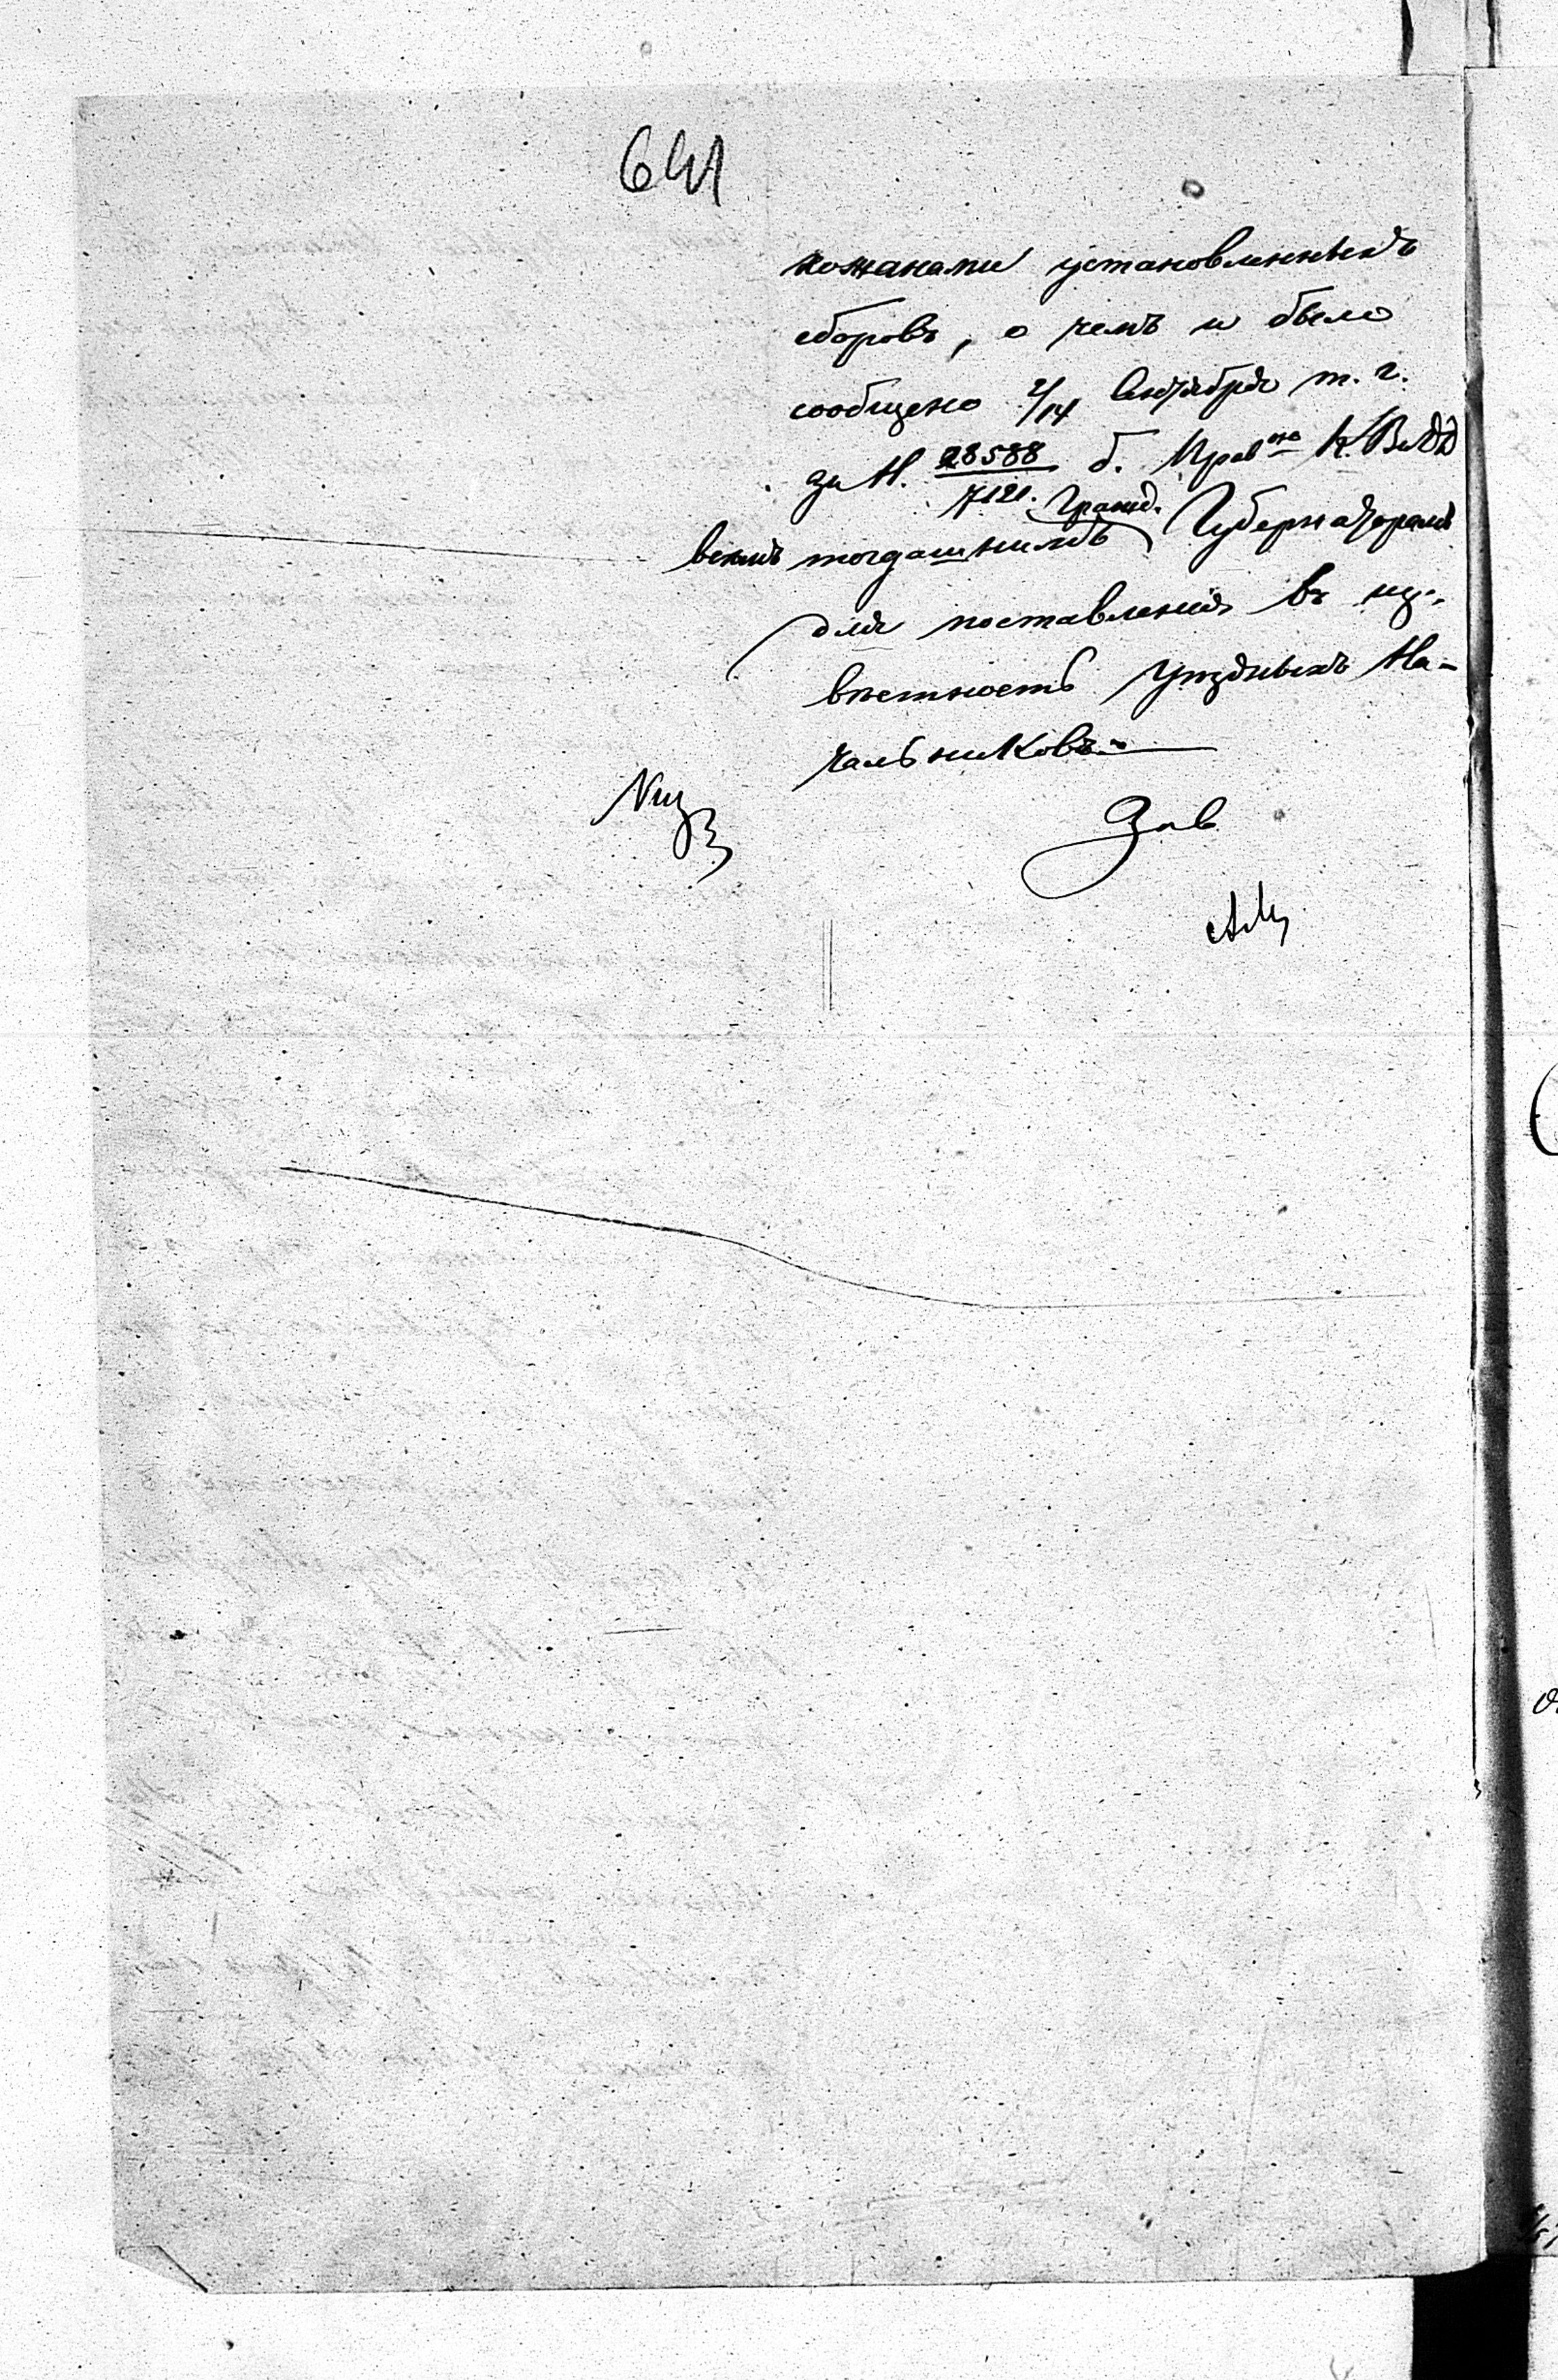 641
хожанами установленныхъ
сборовъ, о чемъ и было
сообщено 2/14 Сентября т. г.
за Н. 28588/7121. б. Прав ою К. В. и Д. Д
Гражд.
всемъ тогдашнимъ Губернаторамъ
для поставленія въ из-
вѣстность Уѣздныхъ На-
чальниковъ.
Зав